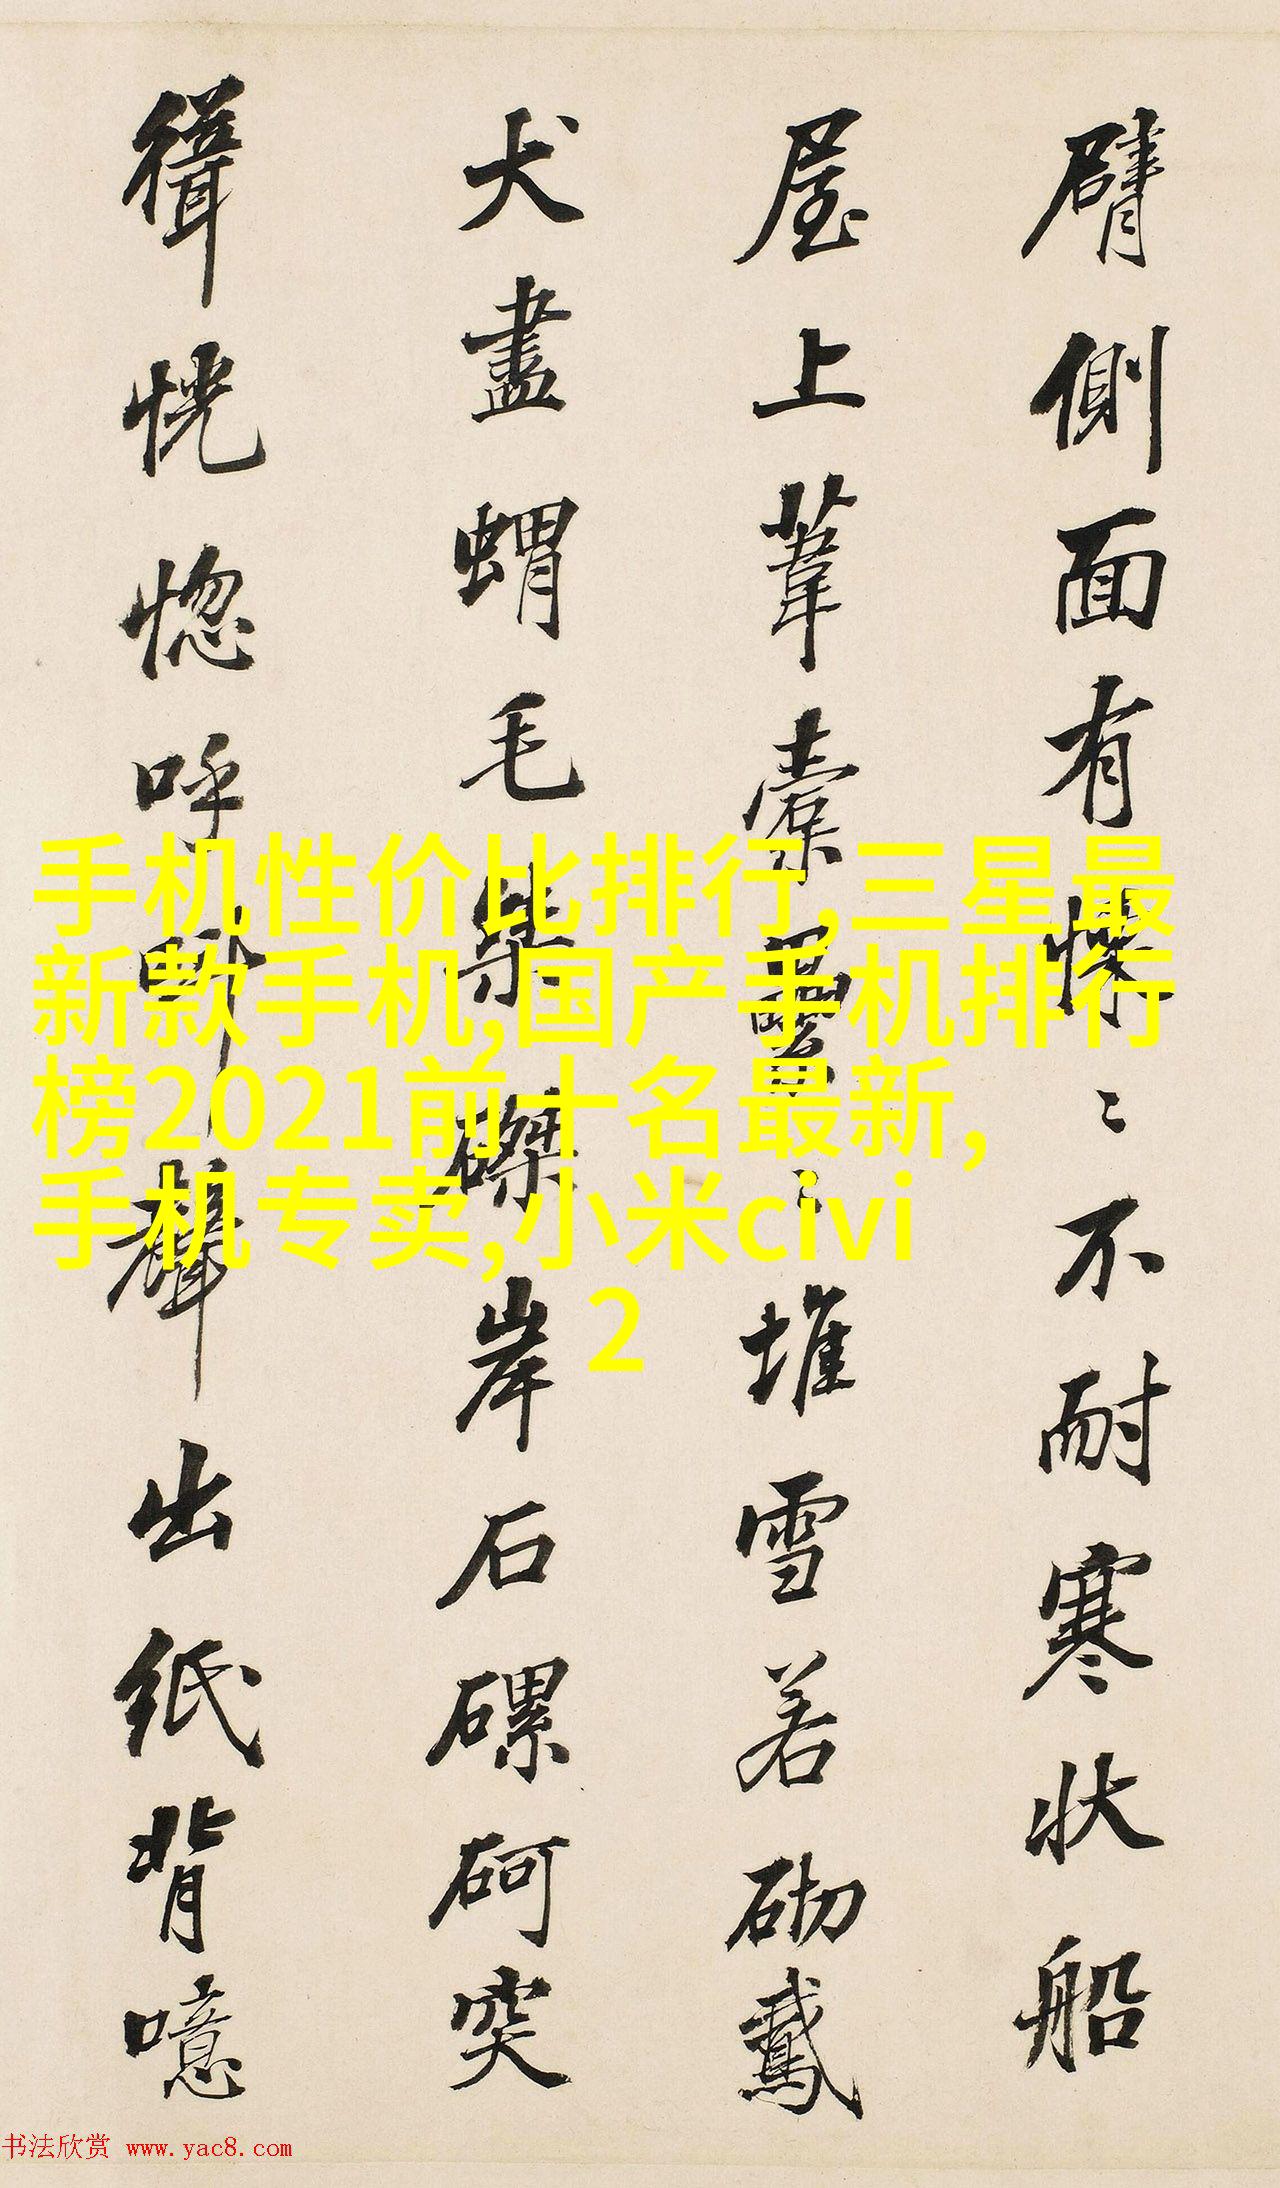 手机性价比排行,三星最
新款手机,国产手机排行
榜2021前十名最新,
手机专卖,小米civi
2
臂側面有〻不耐寒状船
屋上葦〻堆雪若砌
犬盡蝟毛柴磔岸石磥砢突
恍惚呼聲出紙背噫
书法欣赏 www.yac8.com